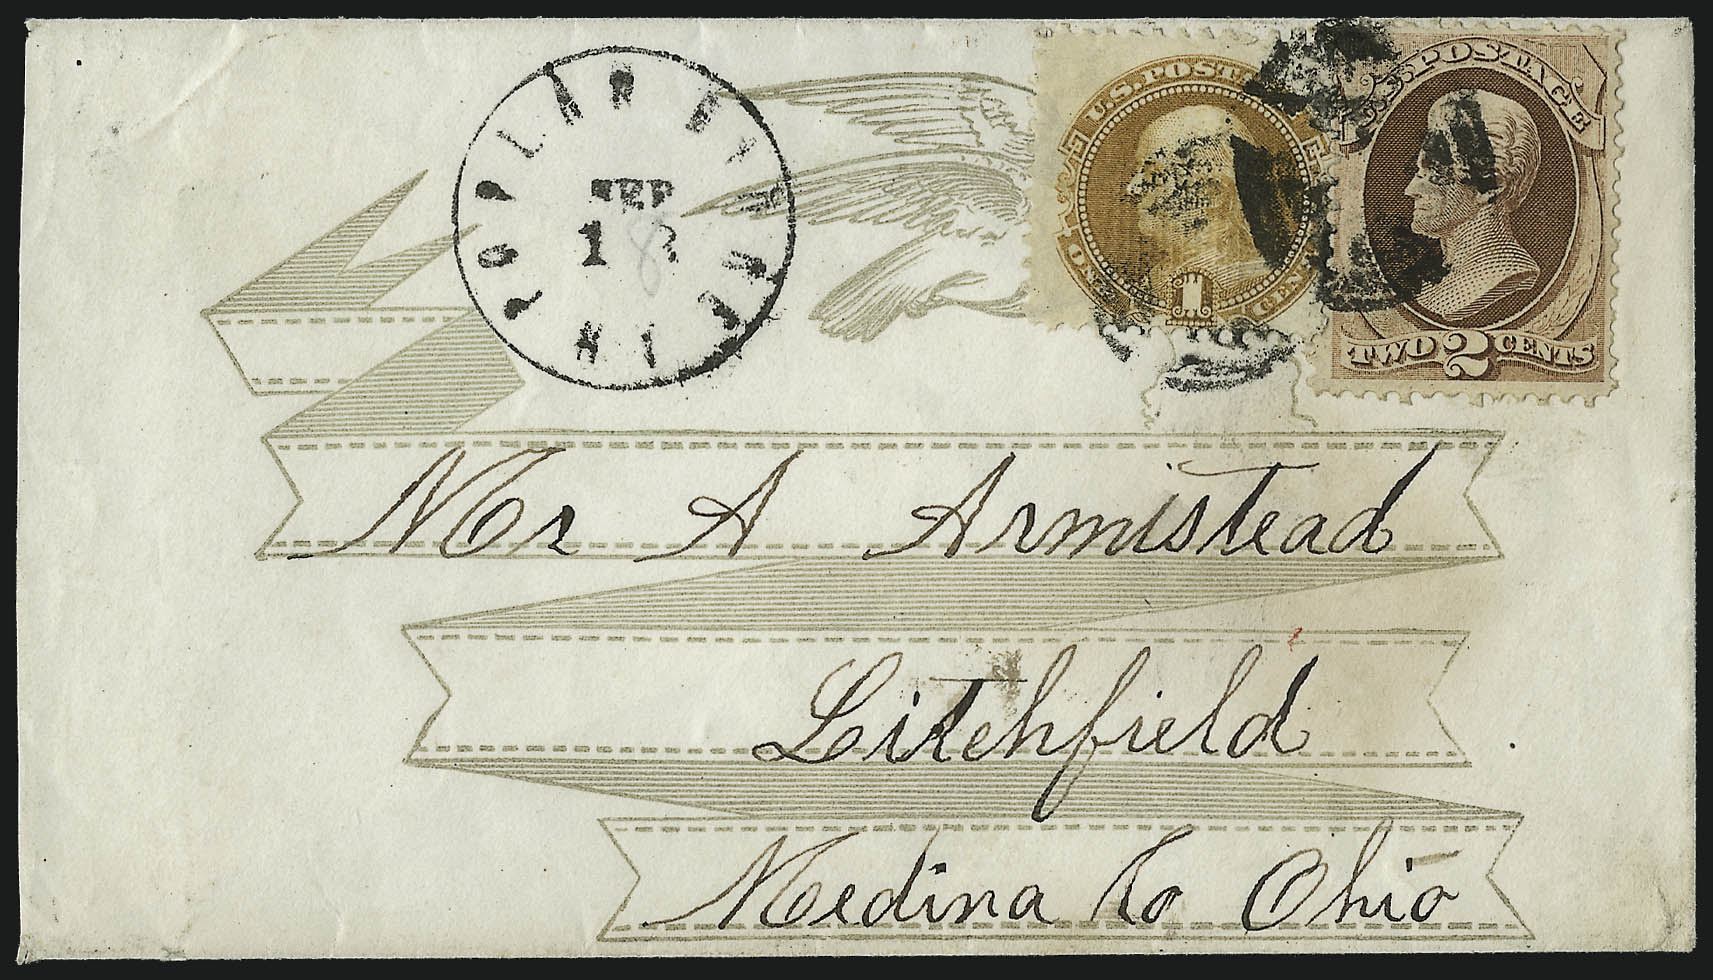 POPLAR
SEP
U.S. POSTAGE
ONE 1 CENT
U.S. POSTAGE
TWO 2 CENTS
Mr A Armistead
Litchfield
Medina Co Ohio